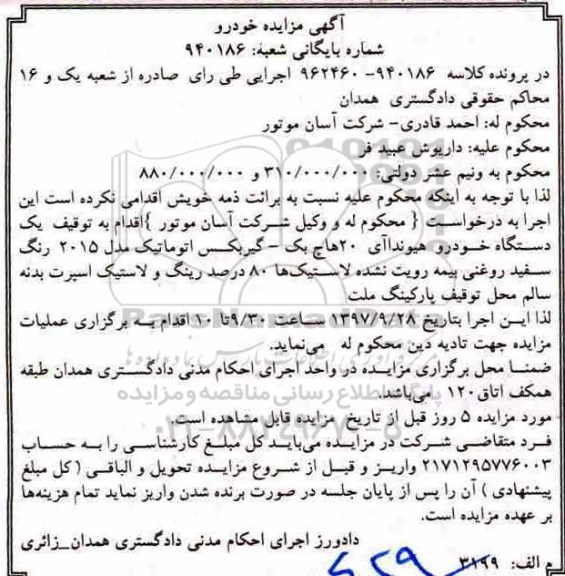 آگهی مزایده خودرو
شماره بایگانی شعبه: ۹۴۰۱۸۶
در پرونده کلاسه ۹۴۰۱۸۶-۹۶۲۴۶۰ اجرایی طی رای صادره از شعبه یک و ۱۶
محاکم حقوقی دادگستری همدان
محکوم له: احمد قادری- شرکت آسان موتور
محکوم علیه: داریوش عبید فر
محکوم به ونیم عشر دولتی: ۳۱۰/۰۰۰/۰۰۰ و ۸۸۰/۰۰۰/۰۰۰
لذا با توجه به اینکه محکوم علیه نسبت به برائت ذمه خویش اقدامی نکرده است این
اجرا به درخواست { محکوم له و وکیل شرکت آسان موتور }اقدام به توقیف یک
دستگاه خودرو هیوندآآی ۲۰هاچ بک - گیربکس اتوماتیک مدل ۲۰۱۵ رنگ
سفید روغنی بیمه رویت نشده لاستیک‌ها ۸۰ درصد رینگ و لاستیک اسپرت بدنه
سالم محل توقیف پارکینگ ملت
لذا این اجرا بتاریخ ۱۳۹۷/۹/۲۸ ساعت ۹/۳۰تا ۱۰ اقدام به برگزاری عملیات
مزایده جهت تادیه دین محکوم له می‌نماید.
ضمنا محل برگزاری مزایده در واحد اجرای احکام مدنی دادگستری همدان طبقه
همکف اتاق۱۲۰ می‌باشد.
مورد مزایده ۵ روز قبل از تاریخ مزایده قابل مشاهده است.
فرد متقاضی شرکت در مزایده می‌باید کل مبلغ کارشناسی را به حساب
۲۱۷۱۲۹۵۷۷۶۰۰۳ واریز و قبل از شروع مزایده تحویل و الباقی (کل مبلغ
پیشنهادی ) آن را پس از پایان جلسه در صورت برنده شدن واریز نماید تمام هزینه‌ها
بر عهده مزایده است.
دادورز اجرای احکام مدنی دادگستری همدان_زائری
م الف: ۳۱۹۹